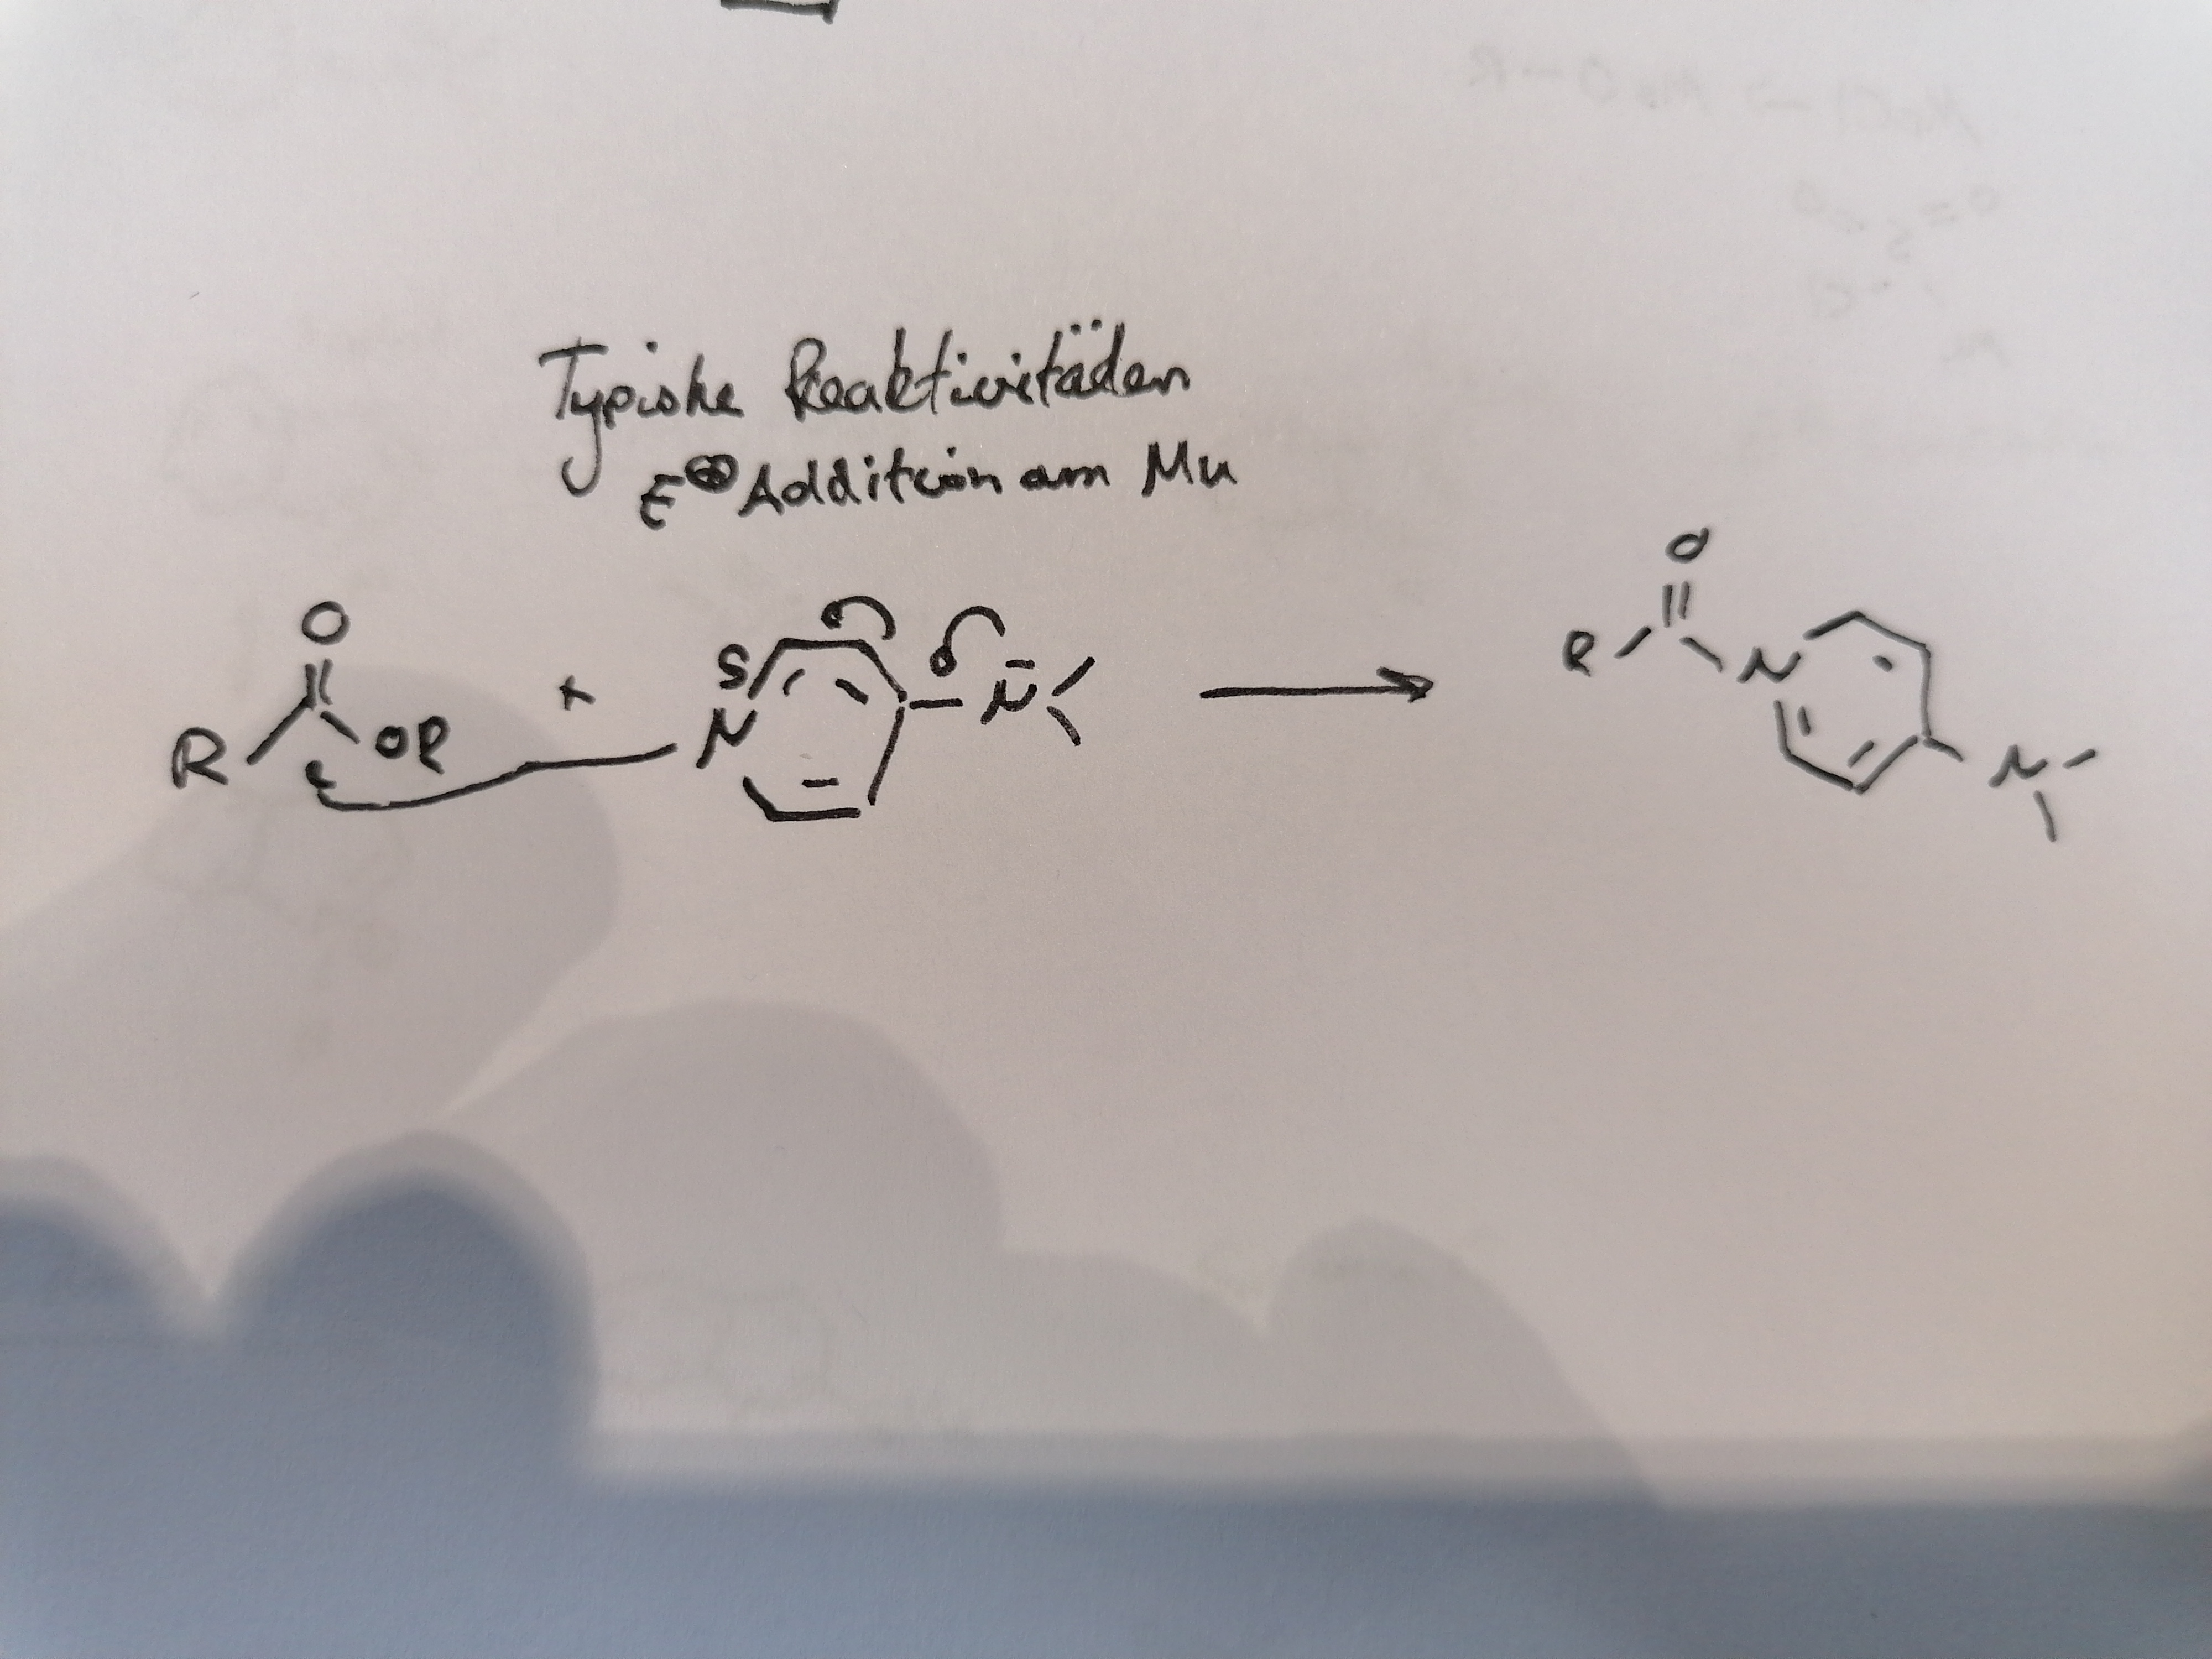 Typishe Reaktivitäden
E⊕ Addition am Mu
O
R OR + S N N̄ → R O N N